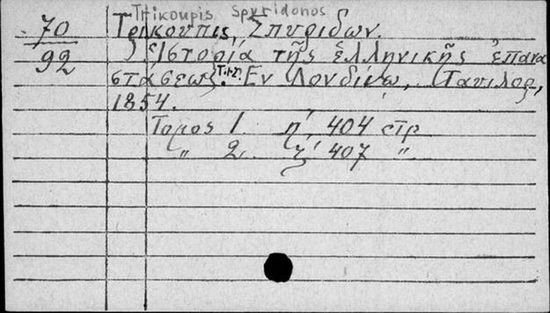 Trikoupis Spyridonos
70 Τρικουπις, Σπυριδων.
92 Ἱστορία τῆς ἑλληνικῆς ἐπανα
στασεως. Τ.1-2. Ἐν Λονδίνω, Ταυιλορ,
1854.
Τομος 1 η', 404 στρ
„ 2. ζ' 407 „